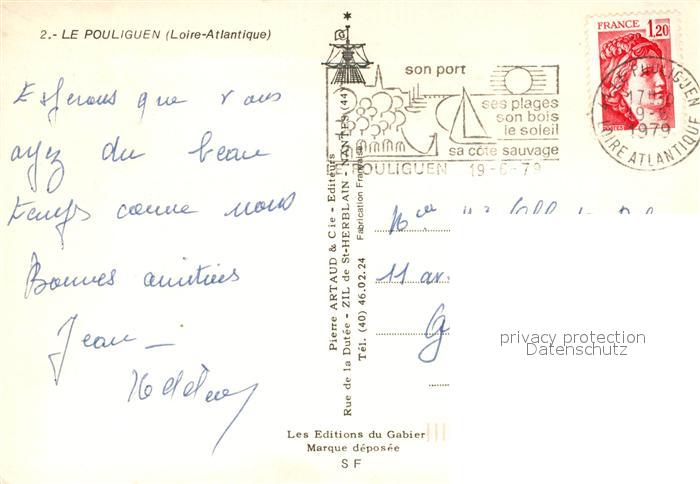 2.- LE POULIGUEN (Loire-Atlantique)
Espérons que vous
ayez du beau
temps comme nous
Bonnes amitiés
Jean -
son port
ses plages
son bois
le soleil
sa côte sauvage
POULIGUEN 19-6-79
FRANCE
1,20
POSTES
LE POULIGUEN
17-30
19-6
1979
LOIRE ATLANTIQUE
Pierre ARTAUD & Cie - Editeurs
Rue de la Dutée - ZIL de St-HERBLAIN - NANTES (44)
Tél. (40) 46.02.24 Fabrication Française
11 av.
privacy protection
Datenschutz
Les Editions du Gabier
Marque déposée
S F